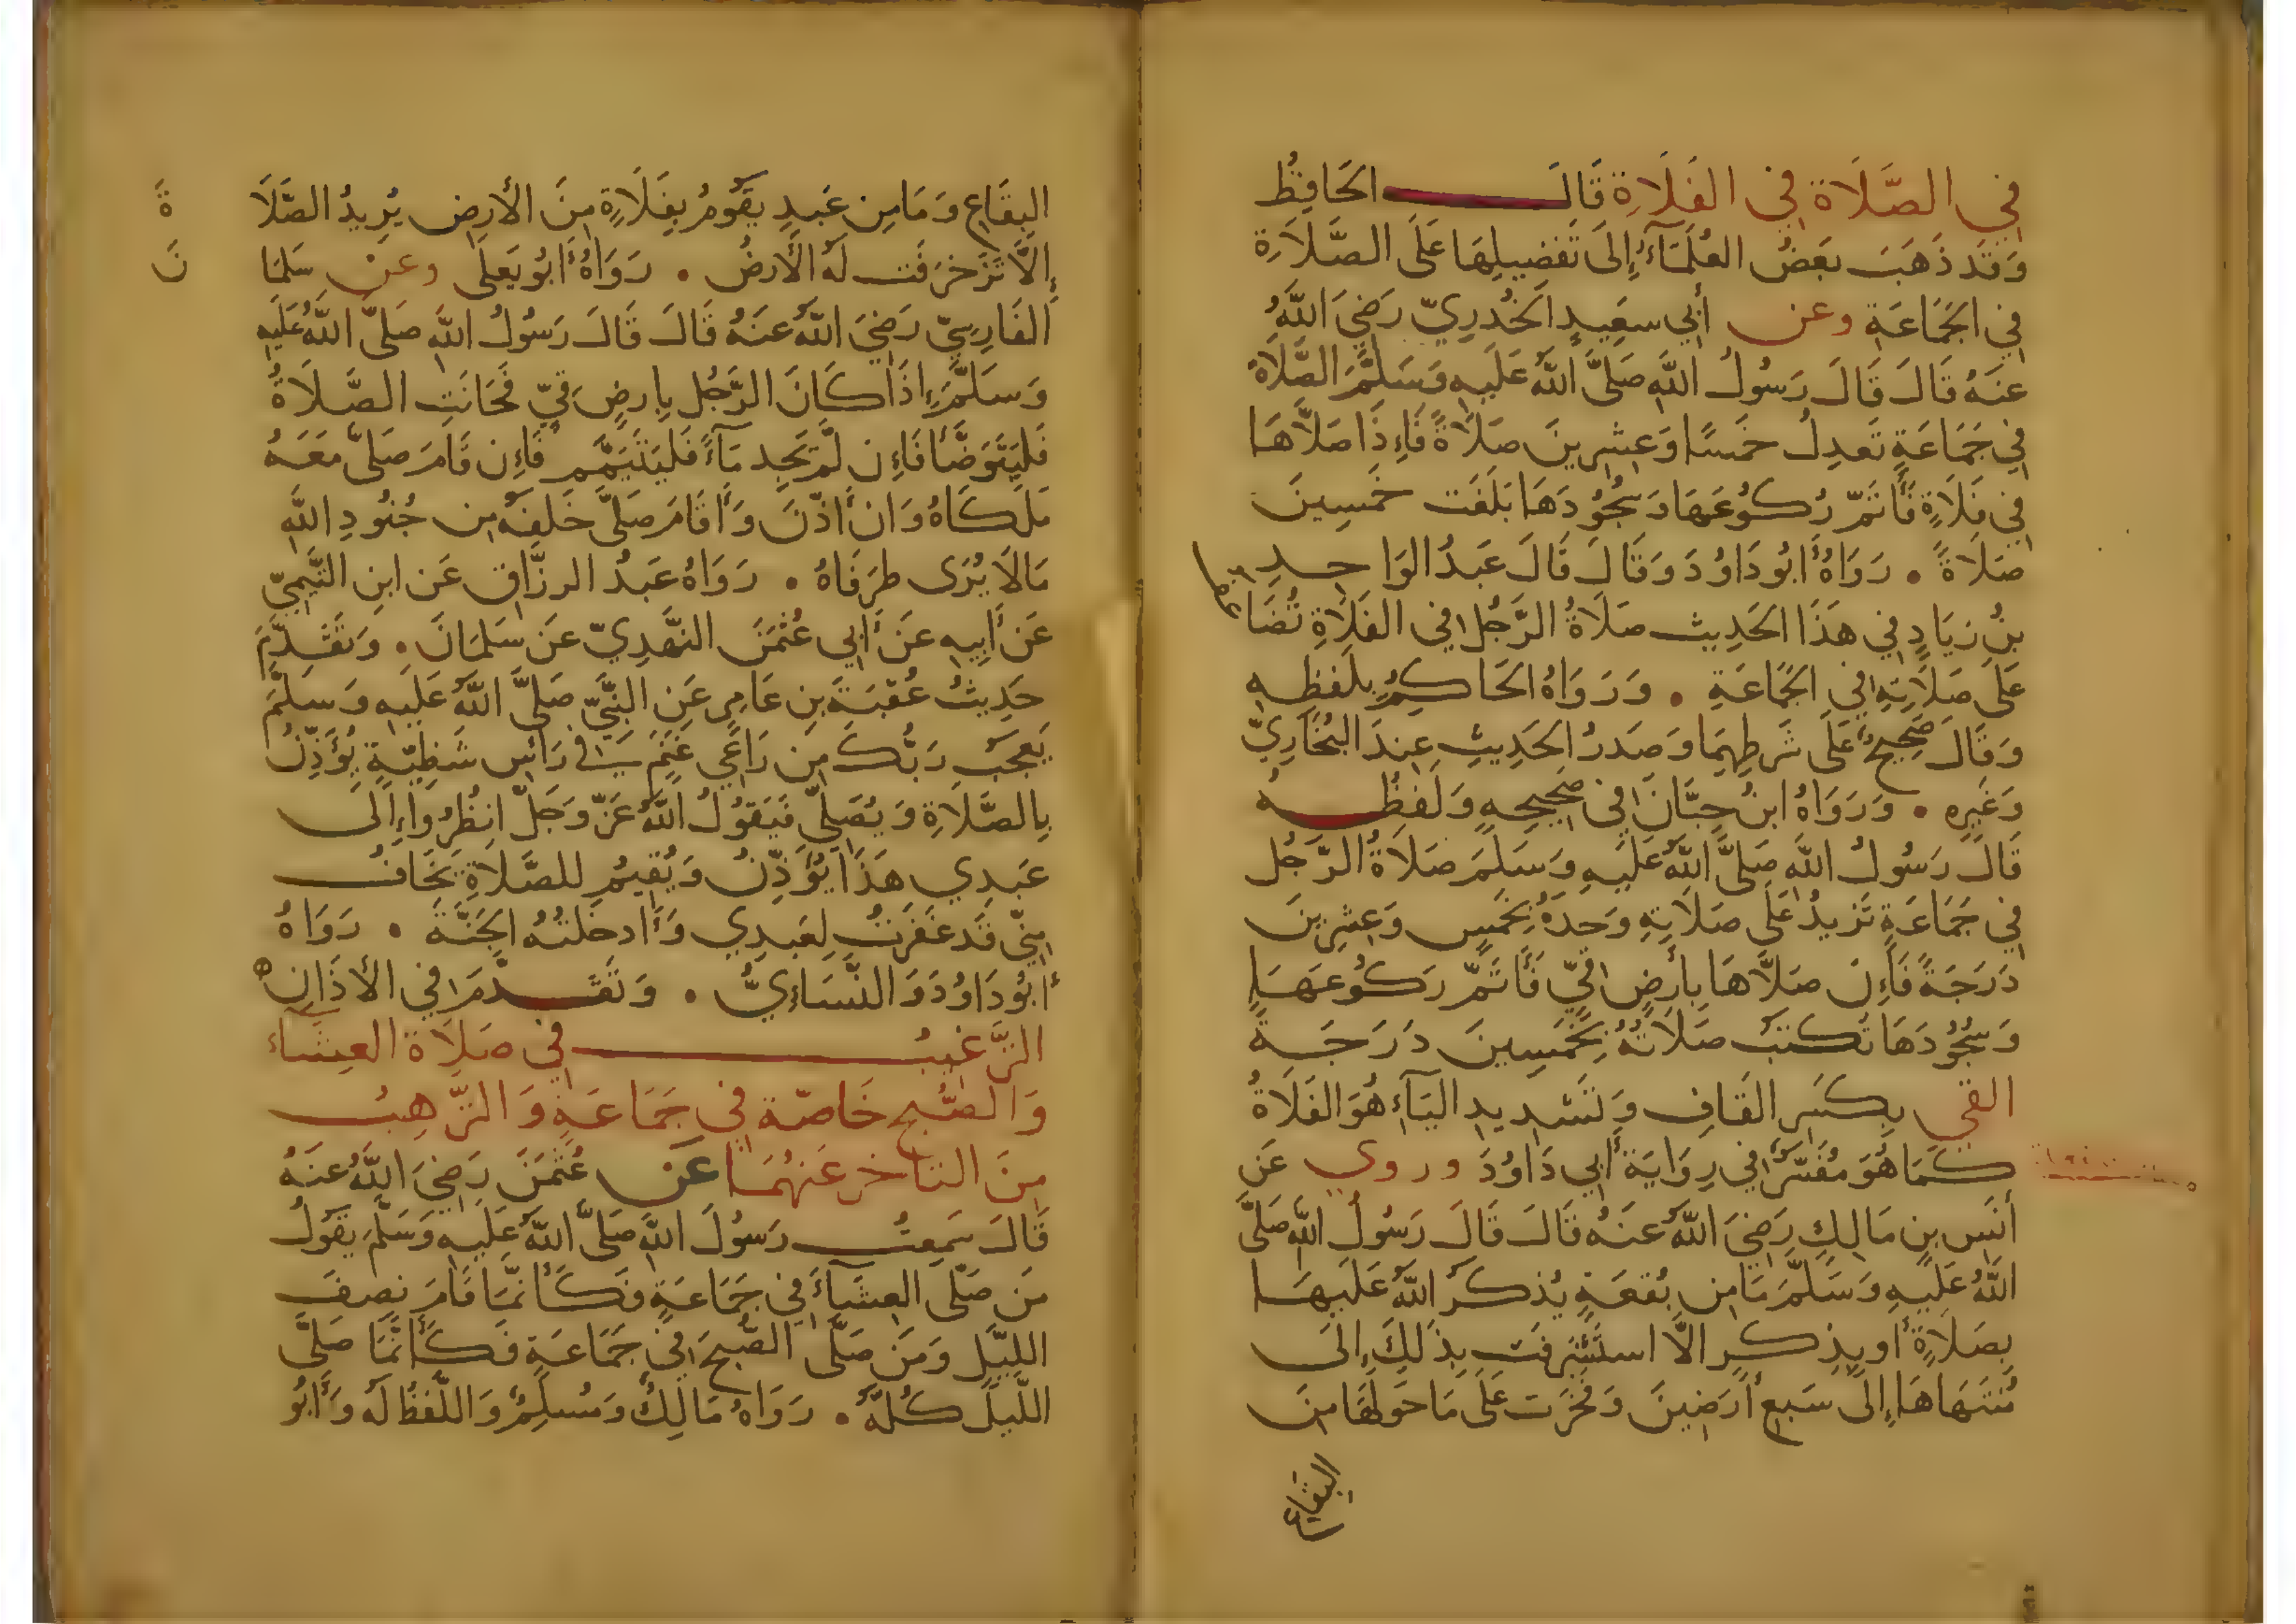 في الصَّلَاة في الفَلَاةِ قَالَ الحَافِظُ
وَقَد ذَهَبَ بَعضُ العُلَمَآءُ إِلَى تَفضِيلِهَا عَلَى الصَّلَاةِ
في الجَمَاعَةِ وعن أَبي سعِيدٍ الخُدرِيّ رَضِيَ اللَّهُ
عنَهُ قَالَ قَالَ رَسُولُ اللَّهِ صَلَّى اللَّهُ عَلَيهِ وَسَلَّمَ الصَّلَاةُ
فِي جَمَاعَةٍ تَعدِلُ خَمسًا وَعِشرِينَ صَلَاةً فَإِذَا صَلَّاهَا
فِي فَلَاةٍ فَأَتَمَّ رُكُوعَهَا وَسُجُودَهَا بَلَغَت خَمسِينَ
صَلَاةً . رَوَاهُ أَبُو دَاوُدَ وَقَالَ قَالَ عَبدُ الوَاحِدِ
بنُ زيَادٍ في هَذَا الحَدِيث صَلَاةُ الرَّجُلِ في الفَلَاةِ تُضَاعَف
عَلَى صَلَاتِهِ في الجَمَاعَةِ . وَرَوَاهُ الحَاكِمُ بِلَفظِهِ
وَقَالَ صَحِيحٌ عَلَى شَرطِهِمَا وَصَدرُ الحَدِيثِ عِندَ البُخَارِيّ
وَغَيرِهِ . وَرَوَاهُ ابنُ حِبَّانَ في صَحِيحِهِ وَلَفظُهُ
قَالَ رَسُولُ اللَّهِ صَلَّى اللَّهُ عَلَيهِ وَسَلَّمَ صَلَاةُ الرَّجُل
في جَمَاعَةٍ تَزِيدُ عَلَى صَلَاتِهِ وَحدَهُ بِخَمسٍ وَعِشرِينَ
دَرَجَةً فَإِن صَلَّاهَا بِأَرضٍ قِيّ فَأَتَمَّ رُكُوعَهَا
وَسُجُودَهَا تُكتَبُ صَلَاتُهُ بِخَمسِينَ دَرَجَةً
القي بِكَسرِ القَافِ وَتَشدِيدِ اليَآءِ هُوَ الفَلَاةُ
كَمَا هُوَ مُفَسَّرٌ في رِوَايَة أَبي دَاوُدَ وروي عَن
أَنَس بنِ مَالِكٍ رَضِيَ اللَّهُ عنَهُ قَالَ قَالَ رَسُولُ اللَّهِ صَلَّى
اللَّهُ عَلَيهِ وَسَلَّمَ مَا مِن بُقعَةٍ يُذكَرُ اللَّهُ عَلَيهَا
بِصَلَاةٍ أَو بِذِكرٍ إلَّا استَشرَفَت بِذَلِكَ إِلَى
مُنتَهَاهَا إِلَى سَبعِ أَرَضِينَ وَفَخَرَت عَلَى مَا حَولَهَا مِنَ
البقاع
البِقَاعِ وَمَا مِن عَبدٍ يَقُومُ بِفَلَاةٍ مِنَ الأَرضِ يُرِيدُ الصَّلَاةَ
إِلَّا تَزَخرَفَت لَهُ الأَرضُ . رَوَاهُ أَبُو يَعلَى وعن سَلمَانَ
الفَارِسِيّ رَضِيَ اللَّهُ عنَهُ قَالَ قَالَ رَسُولُ اللَّهِ صَلَّى اللَّهُ عَلَيهِ
وَسَلَّمَ إِذَا كَانَ الرَّجُل بِأَرضٍ قِيّ فَحَانَتِ الصَّلَاةُ
فَليَتَوَضَّأ فَإِن لَّم يَجِد مَآءً فَليَتَيَمَّم فَإِن قَامَ صَلَّى مَعَهُ
مَلَكَاهُ وَإن أَذَّنَ وَأَقَامَ صَلَّى خَلفَهُ مِن جُنُودِ اللَّهِ
مَا لَا يُرَى طَرَفَاهُ . رَوَاهُ عَبدُ الرزَّاقِ عَن ابنِ التَّيمِيّ
عَن أَبِيهِ عَن أَبي عُثمَنَ النَّهدِيّ عَن سَلمَانَ . وَتَقَدَّمَ
حَدِيثُ عُقبَةَ بنِ عَامِرٍ عَنِ النَّبِيّ صَلَّى اللَّهُ عَلَيهِ وَسَلَّمَ
يَعجَبُ رَبُّكَ مِن رَاعِي غَنَمٍ في رَأسِ شَظِيَّةٍ يُؤَذِّنُ
بِالصَّلَاةِ وَيُصَلِّي فَيَقُولُ اللَّهُ عَزَّ وَجَلَّ انظُرُوا إِلَى
عَبدِي هَذَا يُؤَذِّنُ وَيُقِيمُ للصَّلَاةِ يَخَافُ
مِنّي قَد غَفَرتُ لِعَبدِي وَأَدخَلتُهُ الجَنَّةَ . رَوَاهُ
أَبُو دَاوُدَ وَالنَّسَاءِيُّ . وَتَقَدَّمَ في الأَذَانِ ه
التَّرغيبُ في صَلَاة العِشَآء
وَالصُّبح خَاصّة في جَمَاعَةٍ وَالتَّرهِيبُ
مِنَ التأخر عَنهُمَا عَن عُثمَنَ رَضِيَ اللَّهُ عنَهُ
قَالَ سَمِعتُ رَسُولَ اللَّهِ صَلَّى اللَّهُ عَلَيهِ وَسَلَّمَ يَقُولُ
مَن صَلَّى العِشَآءَ في جَمَاعَةٍ فَكَأَنَّمَا قَامَ نِصفَ
اللَّيلِ وَمَن صَلَّى الصُّبحَ في جَمَاعَةٍ فَكَأَنَّمَا صَلَّى
اللَّيلَ كُلَّهُ . رَوَاهُ مَالِكٌ وَمُسلِمٌ وَاللَّفظُ لَهُ وَأَبُو